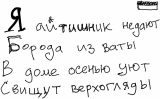 Я айтишник недают
Борода из ваты
В доме осенью уют
Свищут верхогляды